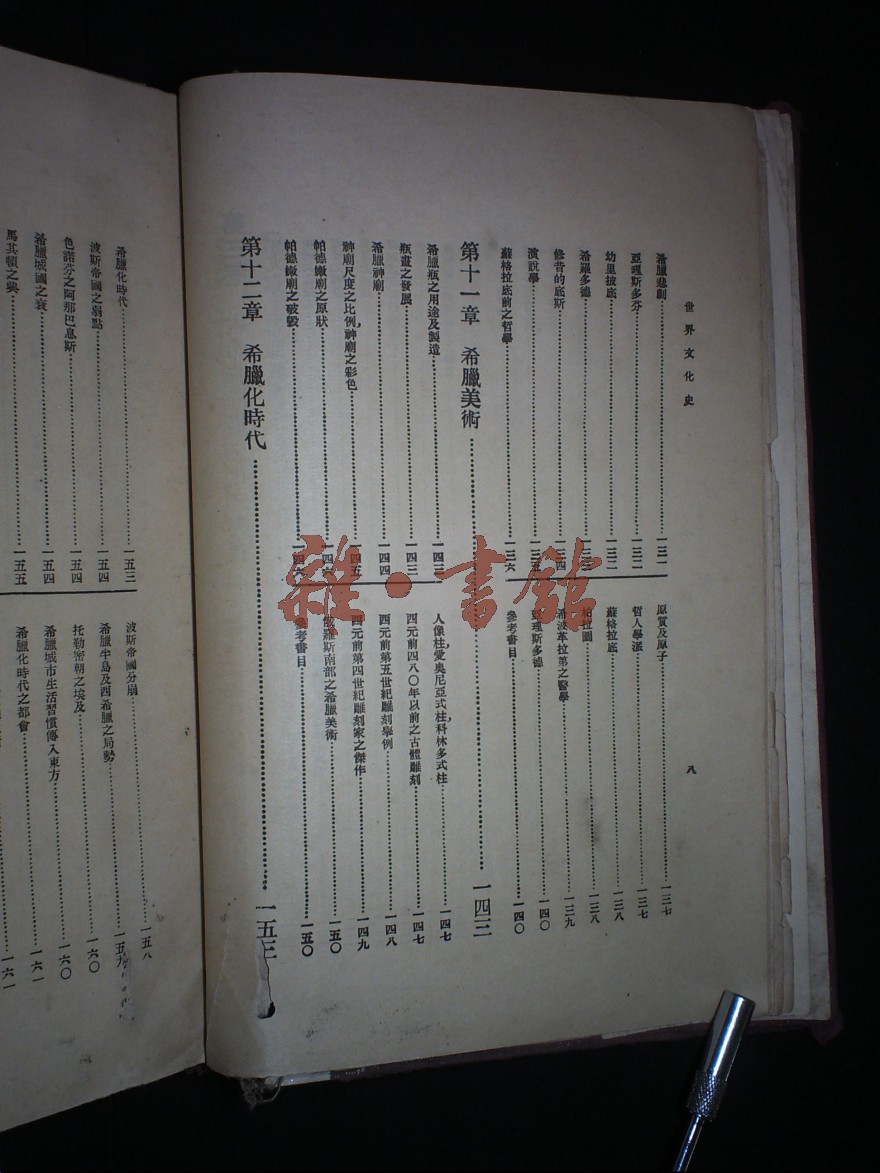 世界文化史
八
希臘悲劇 一三一
亞理斯多芬 一三二
幼里披底 一三二
希羅多德 一三三
修昔的底斯 一三四
演說學 一三五
蘇格拉底前之哲學 一三六
原質及原子 一三七
哲人學派 一三七
蘇格拉底 一三八
柏拉圖 一三八
希波革拉第之醫學 一三九
亞理斯多德 一四〇
參考書目 一四〇
第十一章 希臘美術 一四三
希臘瓶之用途及製造 一四三
瓶畫之發展 一四三
希臘神廟 一四四
神廟尺度之比例，神廟之彩色 一四五
帕德嫩廟之原狀 一四六
帕德嫩廟之破毀 一四六
人像柱，愛奧尼亞式柱，科林多式柱 一四七
西元前四八〇年以前之古體雕刻 一四七
西元前第五世紀雕刻舉例 一四八
西元前第四世紀雕刻家之傑作 一四九
俄羅斯南部之希臘美術 一五〇
參考書目 一五〇
第十二章 希臘化時代 一五三
希臘化時代 一五三
波斯帝國之弱點 一五四
色諾芬之阿那巴息斯 一五四
希臘城國之衰 一五四
馬其頓之興 一五五
波斯帝國分崩 一五八
希臘半島及西希臘之局勢 一五九
托勒密朝之埃及 一六〇
希臘城市生活習慣傳入東方 一六〇
希臘化時代之都會 一六一
雜·書館